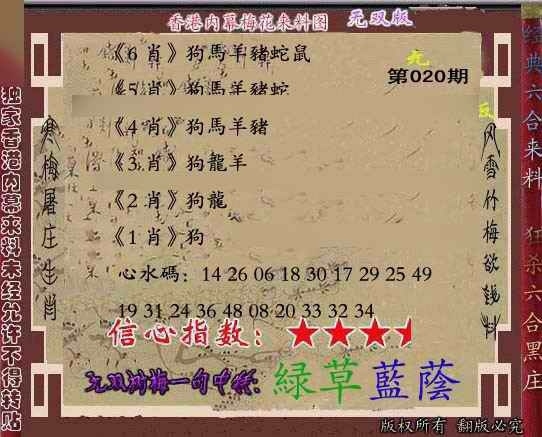 香港内幕梅花来料图 无双版
《6 肖》狗馬羊豬蛇鼠
第020期
《5 肖》狗馬羊豬蛇
《4 肖》狗馬羊豬
《3 肖》狗龍羊
《2 肖》狗龍
《1 肖》狗
心水碼：14 26 06 18 30 17 29 25 49
19 31 24 36 48 08 20 33 32 34
信心指数：
无双湘梅一句中特：綠草藍蔭
版权所有 翻版必究
独家香港内幕来料未经允许不得转贴
寒梅屠庄生肖
风雪竹梅欲钱料
经典六合来料 狂杀六合黑庄